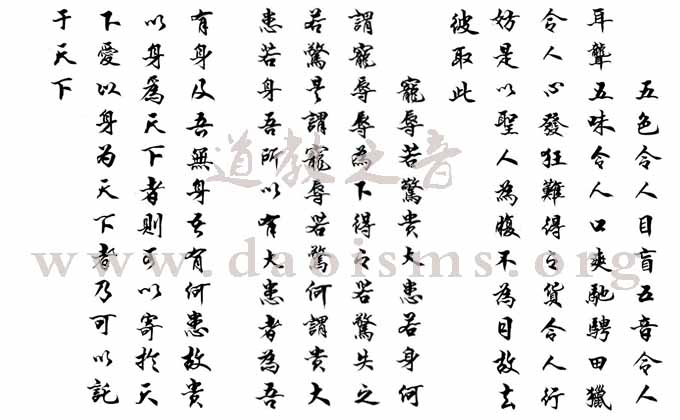 五色令人目盲五音令人
耳聾五味令人口爽馳騁田獵
令人心發狂難得之貨令人行
妨是以聖人為腹不為目故去
彼取此
寵辱若驚貴大患若身何
謂寵辱辱為下得之若驚失之
若驚是謂寵辱若驚何謂貴大
患若身吾所以有大患者為吾
有身及吾無身吾有何患故貴
以身為天下者則可以寄於天
下愛以身为天下者乃可以託
于天下
道教之音
www.daoisms.org